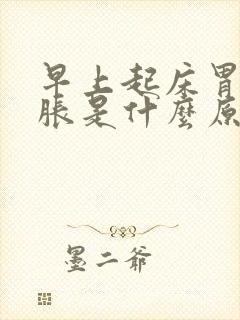 早上起床胃
脹是什麼原
墨二爺